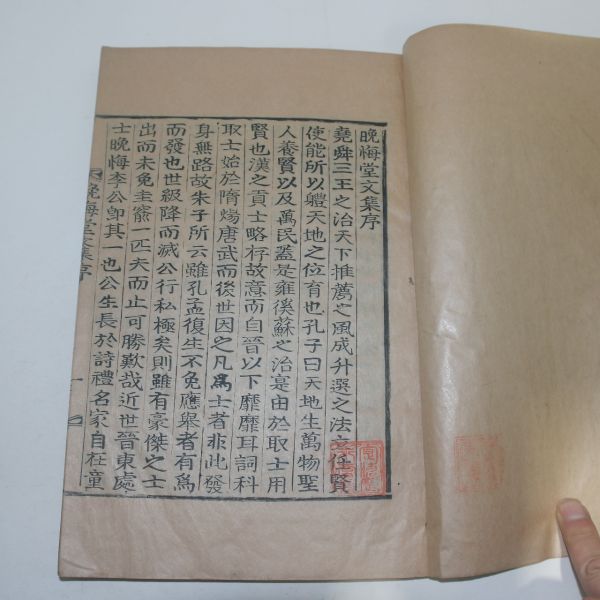 晩悔堂文集序
堯舜三王之治天下推薦之風成升選之法立任賢
使能所以軆天地之位育也孔子曰天地生萬物聖
人養賢以及萬民蓋是雍徯蘇之治寔由於取士用
賢也漢之貢士略存故意而自晉以下靡靡耳詞科
取士始於隋煬唐武而後世因之凡爲士者非此發
身無路故朱子所云雖孔孟復生不免應擧者有爲
而發也世級降而滅公行私極矣則雖有豪傑之士
出而未免圭竇一匹夫而止可勝歎哉近世晉東處
士晩悔李公卽其一也公生長於詩禮名家自在童
晩悔堂文集序
一